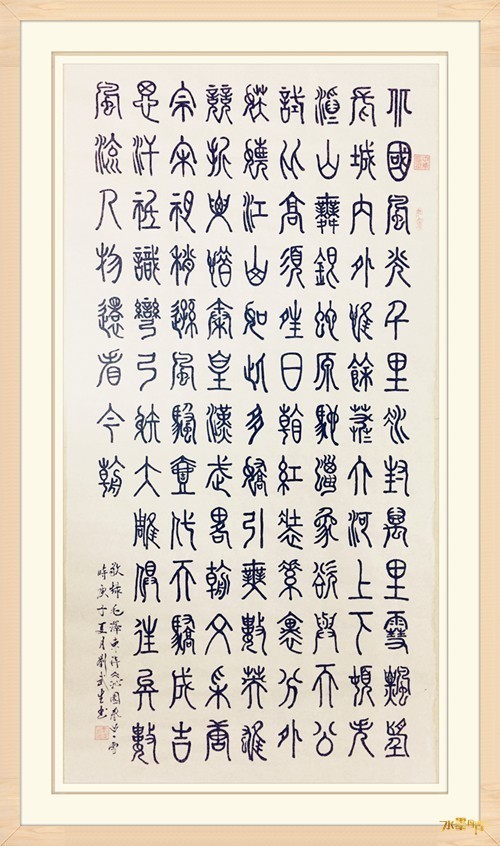 北國風光千里冰封萬里雪飄望
長城內外惟餘莽大河上下頓失
滔山舞銀蛇原馳蠟象欲與天公
試比高須晴日看紅裝素裹分外
妖嬈江山如此多嬌引無數英雄
競折腰惜秦皇漢武略輸文采唐
宗宋祖稍遜風騷壹代天驕成吉
思汗祗識彎弓射大雕俱往矣數
風流人物還看今朝
敬錄毛澤東詩沁園春雪
時庚子夏月劉武生書
水墨